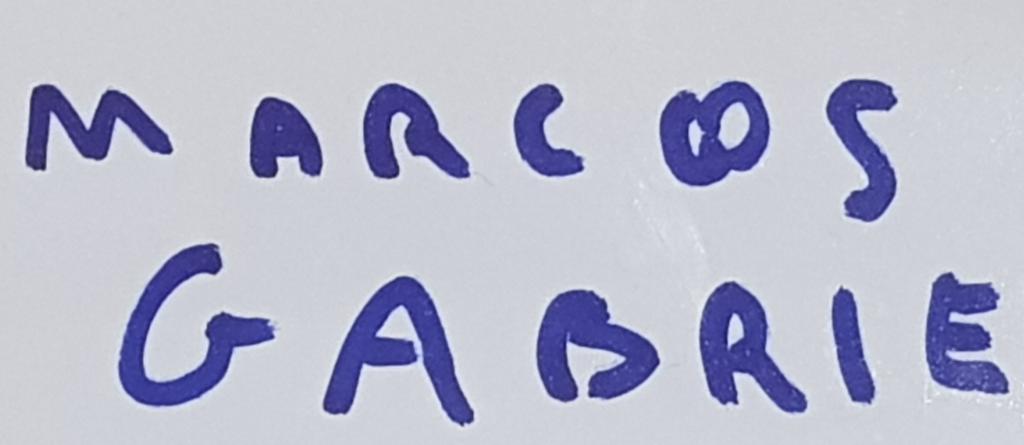 MARCOS
GABRIE